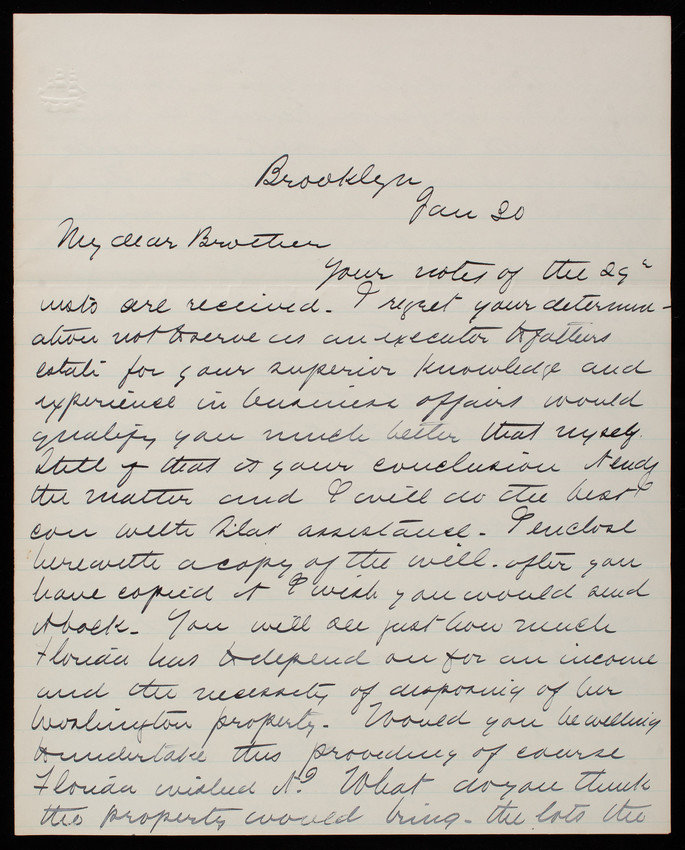 Brooklyn
Jan 30
My dear Brother
Your notes of the 29"
insts are received. I regret your determin-
ation not to serve as an executor to fathers
estate for your superior knowledge and
experience in business affairs would
qualify you much better that myself.
Still if that is your conclusion it ends
the matter and I will do the best I
can with Silas' assistance. I enclose
herewith a copy of the will. after you
have copied it I wish you would send
it back. You will see just how much
Florida has to depend on for an income
and the necessity of disposing of her
Washington property. Would you be willing
to undertake this providing of course
Florida wished it? What do you think
the property would bring - the lots the